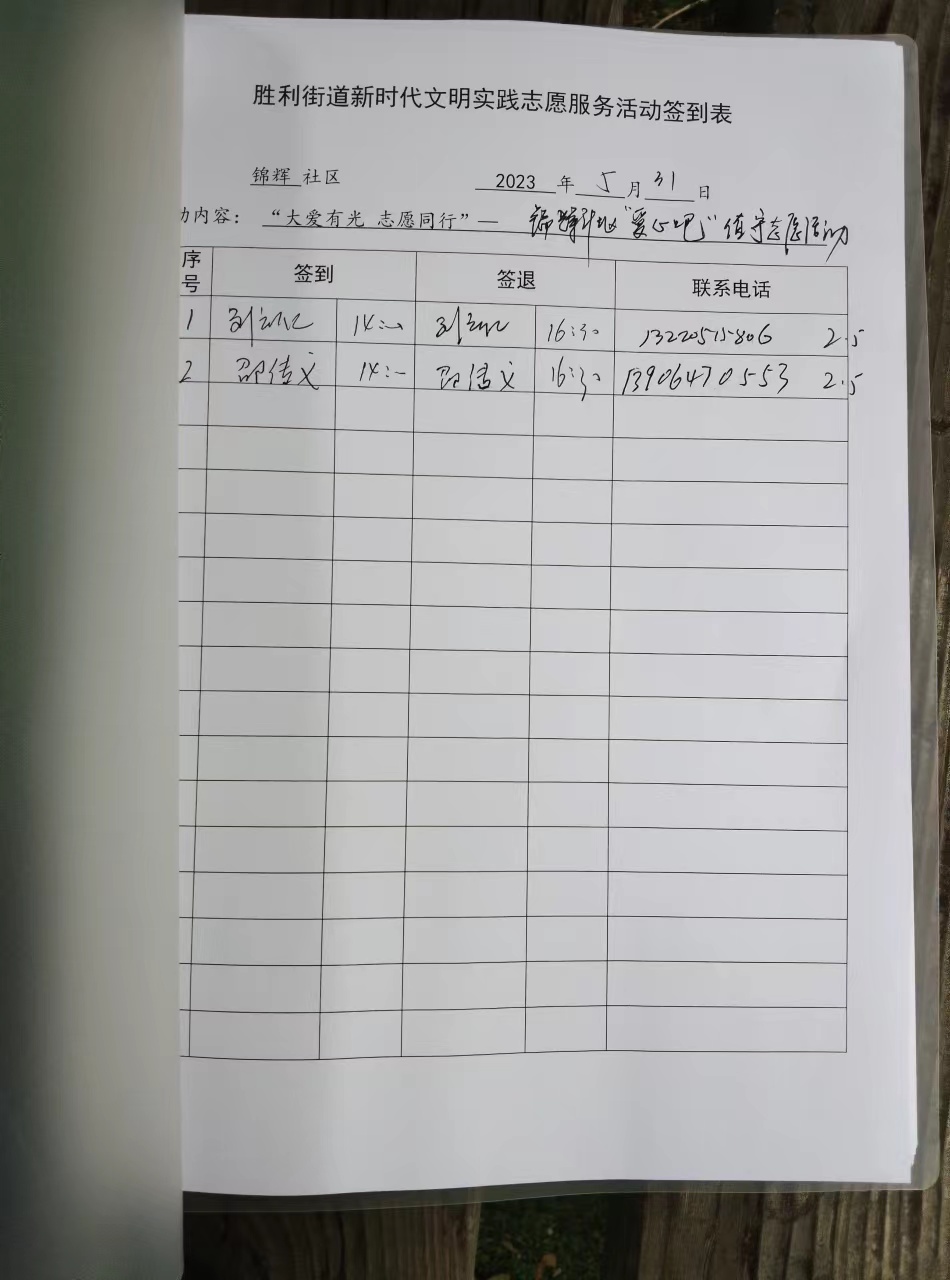 胜利街道新时代文明实践志愿服务活动签到表
锦辉 社区 2023 年 5 月 31 日
动内容： “大爱有光 志愿同行”— 锦辉社区“爱心吧”值守志愿活动
序号 签到 签退 联系电话
1 14:00 16:30 13220515806 2.5
2 邵传义 14:00 16:30 13906470553 2.5